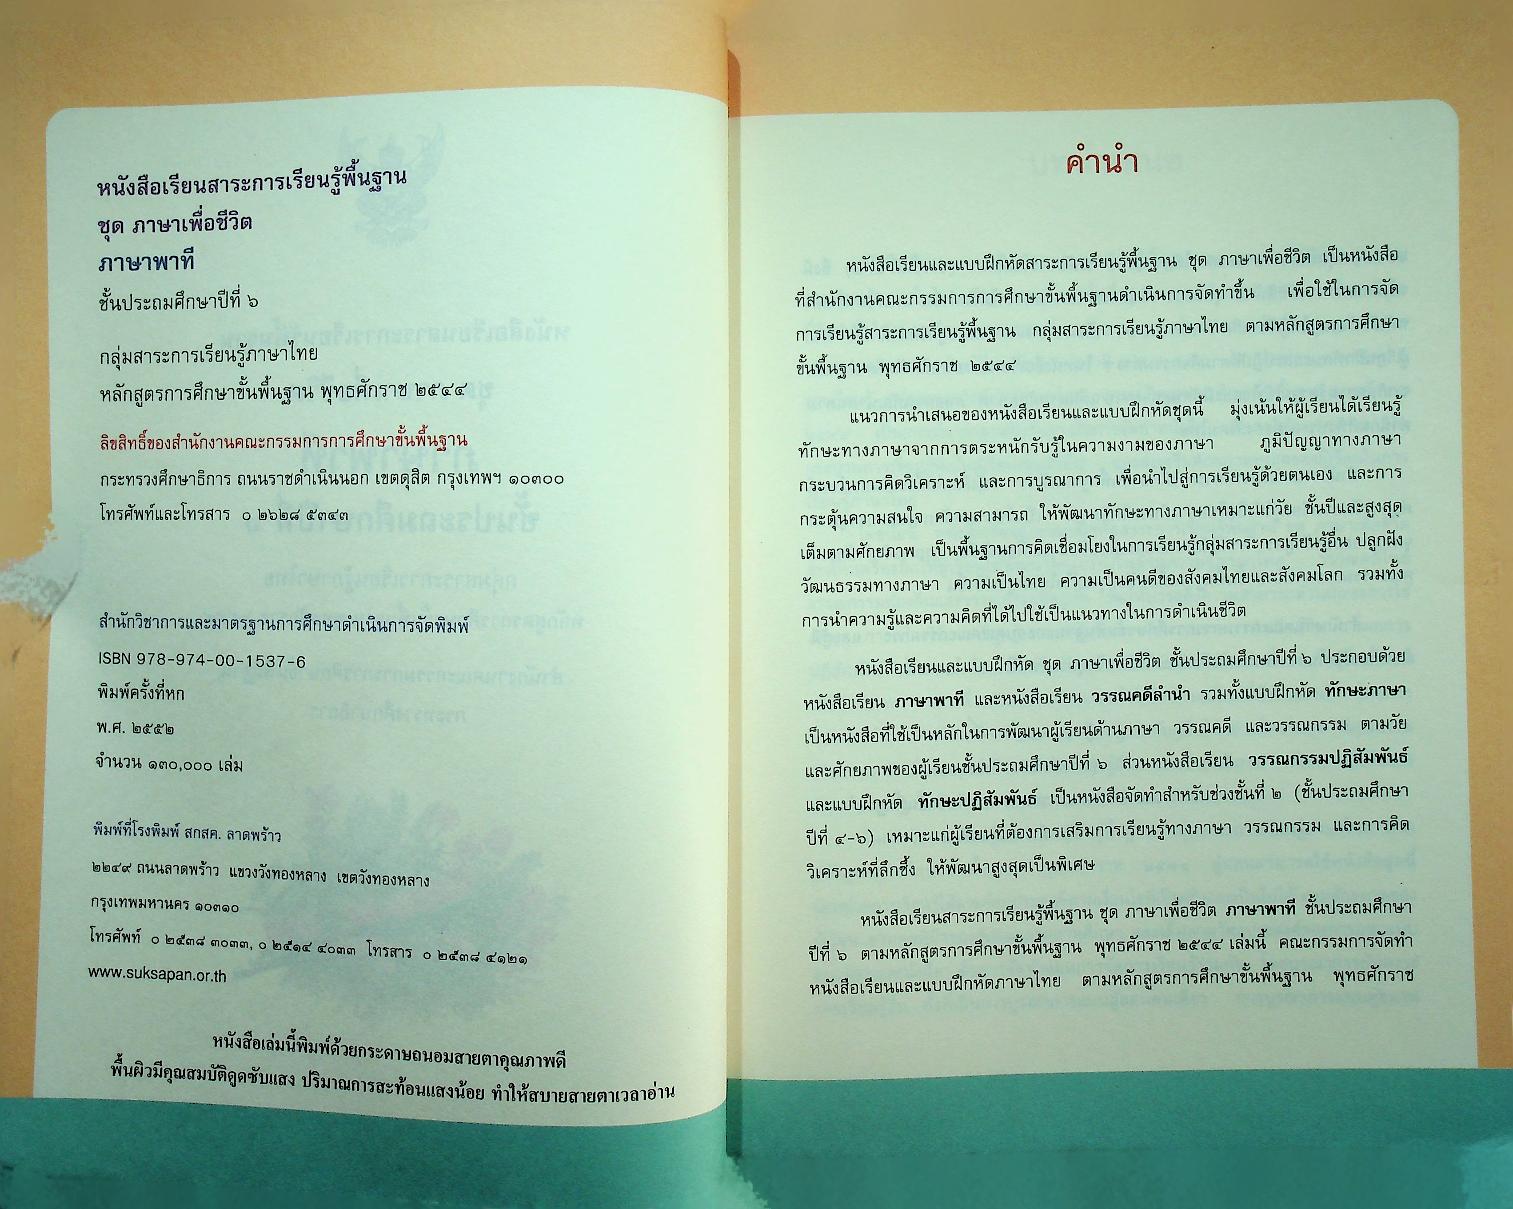 หนังสือเรียนสาระการเรียนรู้พื้นฐาน
ชุด ภาษาเพื่อชีวิต
ภาษาพาที
ชั้นประถมศึกษาปีที่ ๖
กลุ่มสาระการเรียนรู้ภาษาไทย
หลักสูตรการศึกษาขั้นพื้นฐาน พุทธศักราช ๒๕๔๔
ลิขสิทธิ์ของสำนักงานคณะกรรมการการศึกษาขั้นพื้นฐาน
กระทรวงศึกษาธิการ ถนนราชดำเนินนอก เขตดุสิต กรุงเทพฯ ๑๐๓๐๐
โทรศัพท์และโทรสาร ๐ ๒๖๒๘ ๕๓๔๓
สำนักวิชาการและมาตรฐานการศึกษาดำเนินการจัดพิมพ์
ISBN 978-974-00-1537-6
พิมพ์ครั้งที่หก
พ.ศ. ๒๕๕๒
จำนวน ๑๓๐,๐๐๐ เล่ม
พิมพ์ที่โรงพิมพ์ สกสค. ลาดพร้าว
๒๒๔๙ ถนนลาดพร้าว แขวงวังทองหลาง เขตวังทองหลาง
กรุงเทพมหานคร ๑๐๓๑๐
โทรศัพท์ ๐ ๒๕๓๘ ๓๐๓๓, ๐ ๒๕๑๔ ๔๐๓๓ โทรสาร ๐ ๒๕๓๘ ๔๑๒๑
www.suksapan.or.th
หนังสือเล่มนี้พิมพ์ด้วยกระดาษถนอมสายตาคุณภาพดี
พื้นผิวมีคุณสมบัติดูดซับแสง ปริมาณการสะท้อนแสงน้อย ทำให้สบายสายตาเวลาอ่าน
คำนำ
หนังสือเรียนและแบบฝึกหัดสาระการเรียนรู้พื้นฐาน ชุด ภาษาเพื่อชีวิต เป็นหนังสือ
ที่สำนักงานคณะกรรมการการศึกษาขั้นพื้นฐานดำเนินการจัดทำขึ้น เพื่อใช้ในการจัด
การเรียนรู้สาระการเรียนรู้พื้นฐาน กลุ่มสาระการเรียนรู้ภาษาไทย ตามหลักสูตรการศึกษา
ขั้นพื้นฐาน พุทธศักราช ๒๕๔๔
แนวการนำเสนอของหนังสือเรียนและแบบฝึกหัดชุดนี้ มุ่งเน้นให้ผู้เรียนได้เรียนรู้
ทักษะทางภาษาจากการตระหนักรับรู้ในความงามของภาษา ภูมิปัญญาทางภาษา
กระบวนการคิดวิเคราะห์ และการบูรณาการ เพื่อนำไปสู่การเรียนรู้ด้วยตนเอง และการ
กระตุ้นความสนใจ ความสามารถ ให้พัฒนาทักษะทางภาษาเหมาะแก่วัย ชั้นปีและสูงสุด
เต็มตามศักยภาพ เป็นพื้นฐานการคิดเชื่อมโยงในการเรียนรู้กลุ่มสาระการเรียนรู้อื่น ปลูกฝัง
วัฒนธรรมทางภาษา ความเป็นไทย ความเป็นคนดีของสังคมไทยและสังคมโลก รวมทั้ง
การนำความรู้และความคิดที่ได้ไปใช้เป็นแนวทางในการดำเนินชีวิต
หนังสือเรียนและแบบฝึกหัด ชุด ภาษาเพื่อชีวิต ชั้นประถมศึกษาปีที่ ๖ ประกอบด้วย
หนังสือเรียน ภาษาพาที และหนังสือเรียน วรรณคดีลำนำ รวมทั้งแบบฝึกหัด ทักษะภาษา
เป็นหนังสือที่ใช้เป็นหลักในการพัฒนาผู้เรียนด้านภาษา วรรณคดี และวรรณกรรม ตามวัย
และศักยภาพของผู้เรียนชั้นประถมศึกษาปีที่ ๖ ส่วนหนังสือเรียน วรรณกรรมปฏิสัมพันธ์
และแบบฝึกหัด ทักษะปฏิสัมพันธ์ เป็นหนังสือจัดทำสำหรับช่วงชั้นที่ ๒ (ชั้นประถมศึกษา
ปีที่ ๔-๖) เหมาะแก่ผู้เรียนที่ต้องการเสริมการเรียนรู้ทางภาษา วรรณกรรม และการคิด
วิเคราะห์ที่ลึกซึ้ง ให้พัฒนาสูงสุดเป็นพิเศษ
หนังสือเรียนสาระการเรียนรู้พื้นฐาน ชุด ภาษาเพื่อชีวิต ภาษาพาที ชั้นประถมศึกษา
ปีที่ ๖ ตามหลักสูตรการศึกษาขั้นพื้นฐาน พุทธศักราช ๒๕๔๔ เล่มนี้ คณะกรรมการจัดทำ
หนังสือเรียนและแบบฝึกหัดภาษาไทย ตามหลักสูตรการศึกษาขั้นพื้นฐาน พุทธศักราช